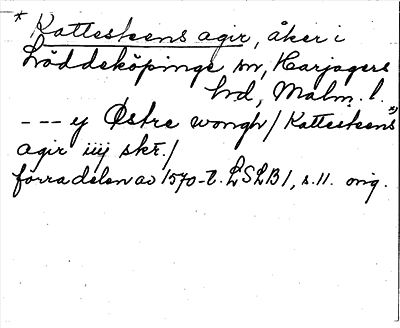 * Kattesteens agir, åker i
Löddeköpinge sn, Harjagers
hd, Malm. l.
--- y Østre wongh / Kattesteens
agir iiij skr. /
förra delen av 1570-t. LSLB 1, s. 11. orig.